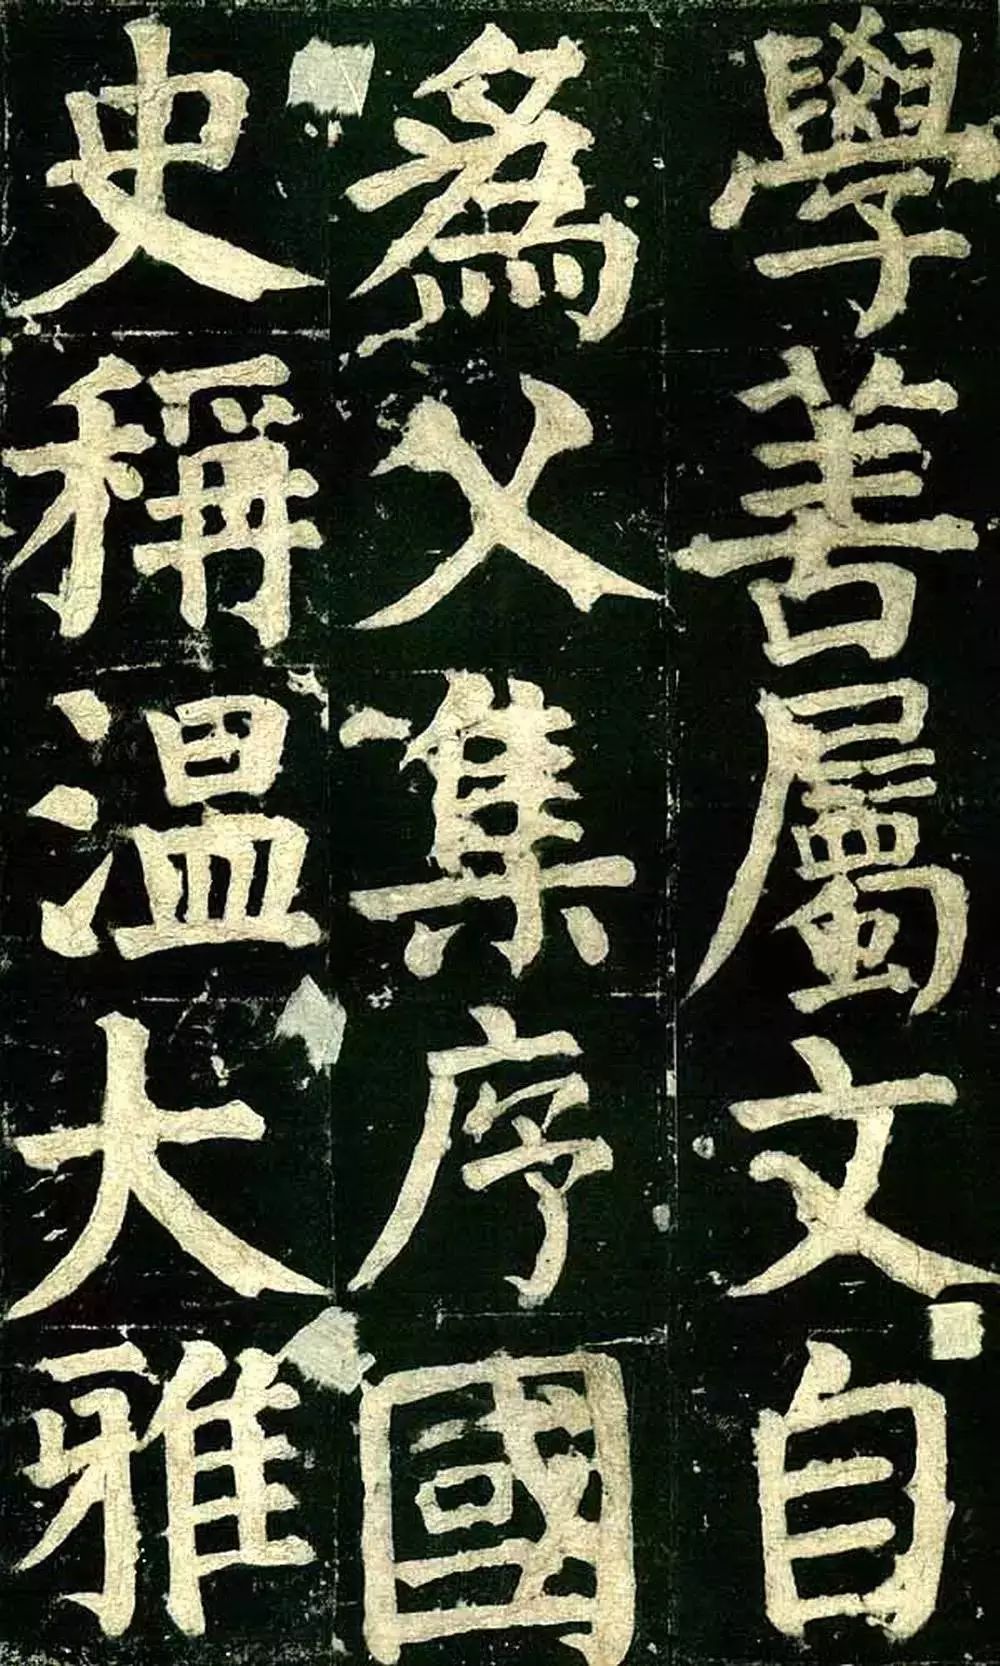 學善屬文自
為父集序國
史稱温大雅